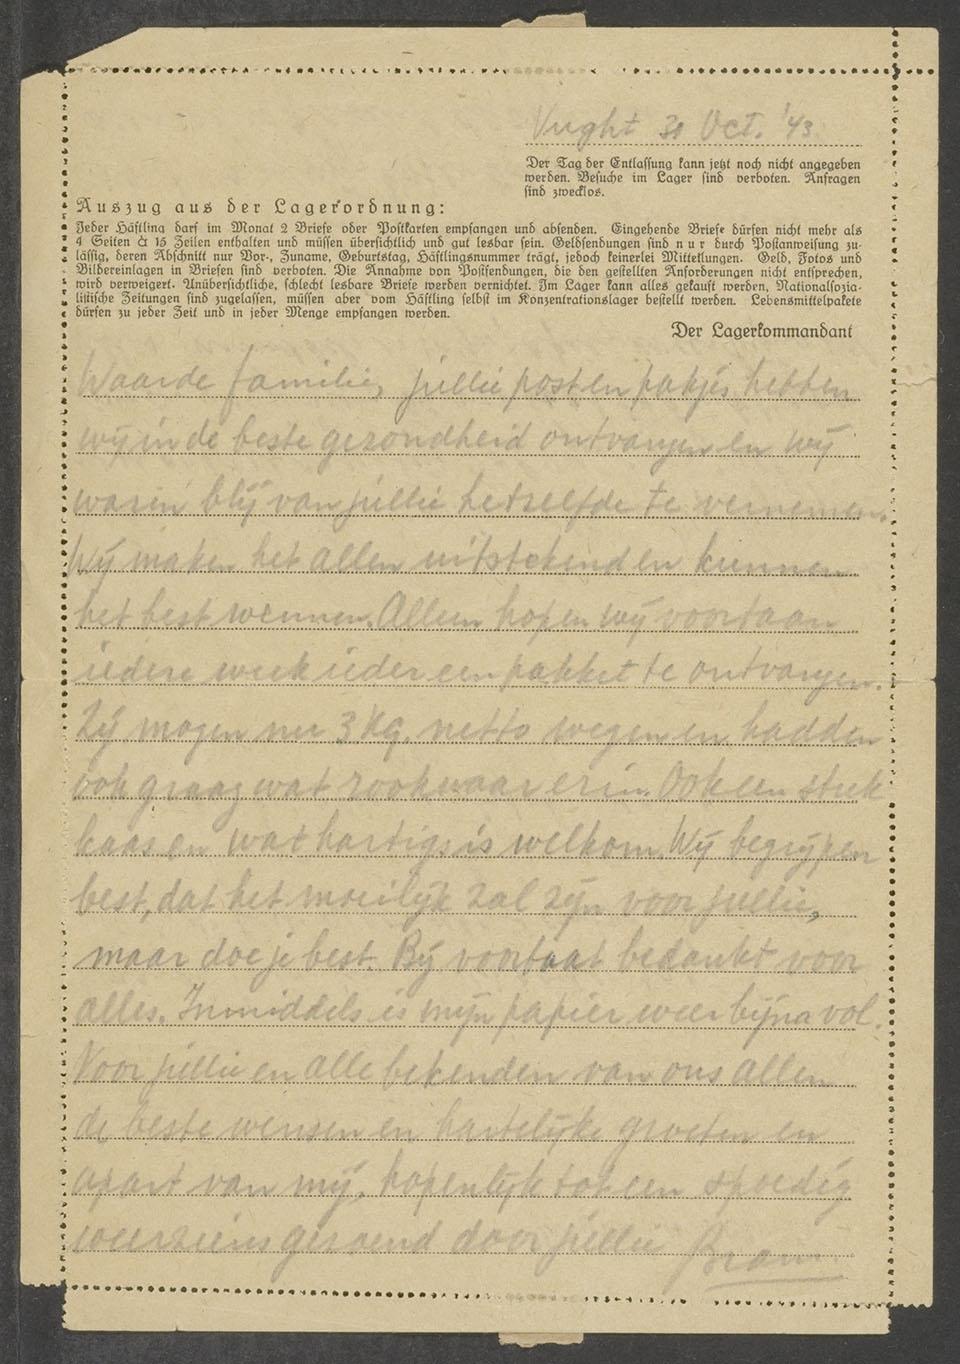 Vught 30 Oct. '43.
Der Tag der Entlassung kann jetzt noch nicht angegeben
werden. Besuche im Lager sind verboten. Anfragen
sind zwecklos.
Auszug aus der Lagerordnung:
Jeder Häftling darf im Monat 2 Briefe oder Postkarten empfangen und absenden. Eingehende Briefe dürfen nicht mehr als
4 Seiten à 15 Zeilen enthalten und müssen übersichtlich und gut lesbar sein. Geldsendungen sind nur durch Postanweisung zu-
lässig, deren Abschnitt nur Vor-, Zuname, Geburtstag, Häftlingsnummer trägt, jedoch keinerlei Mitteilungen. Geld, Fotos und
Bildereinlagen in Briefen sind verboten. Die Annahme von Postsendungen, die den gestellten Anforderungen nicht entsprechen,
wird verweigert. Unübersichtliche, schlecht lesbare Briefe werden vernichtet. Im Lager kann alles gekauft werden, Nationalsozia-
listische Zeitungen sind zugelassen, müssen aber vom Häftling selbst im Konzentrationslager bestellt werden. Lebensmittelpakete
dürfen zu jeder Zeit und in jeder Menge empfangen werden.
Der Lagerkommandant
Waarde familie, jullie post en pakjes hebben
wij in de beste gezondheid ontvangen en wij
waren blij van jullie hetzelfde te vernemen.
Wij maken het allen uitstekend en kunnen
het best wennen. Alleen hopen wij voortaan
iedere week ieder een pakket te ontvangen.
Zij mogen nu 3 Kg. netto wegen en hadden
ook graag wat rookwaar erin. Ook een stuk
kaas en wat hartigs is welkom. Wij begrijpen
best, dat het moeilijk zal zijn voor jullie,
maar doe je best. Bij voorbaat bedankt voor
alles. Inmiddels is mijn papier weer bijna vol.
Voor jullie en alle bekenden van ons allen
de beste wensen en hartelijke groeten en
apart van mij, hopenlijk tot een spoedig
weerziens gezoend door jullie Bram.